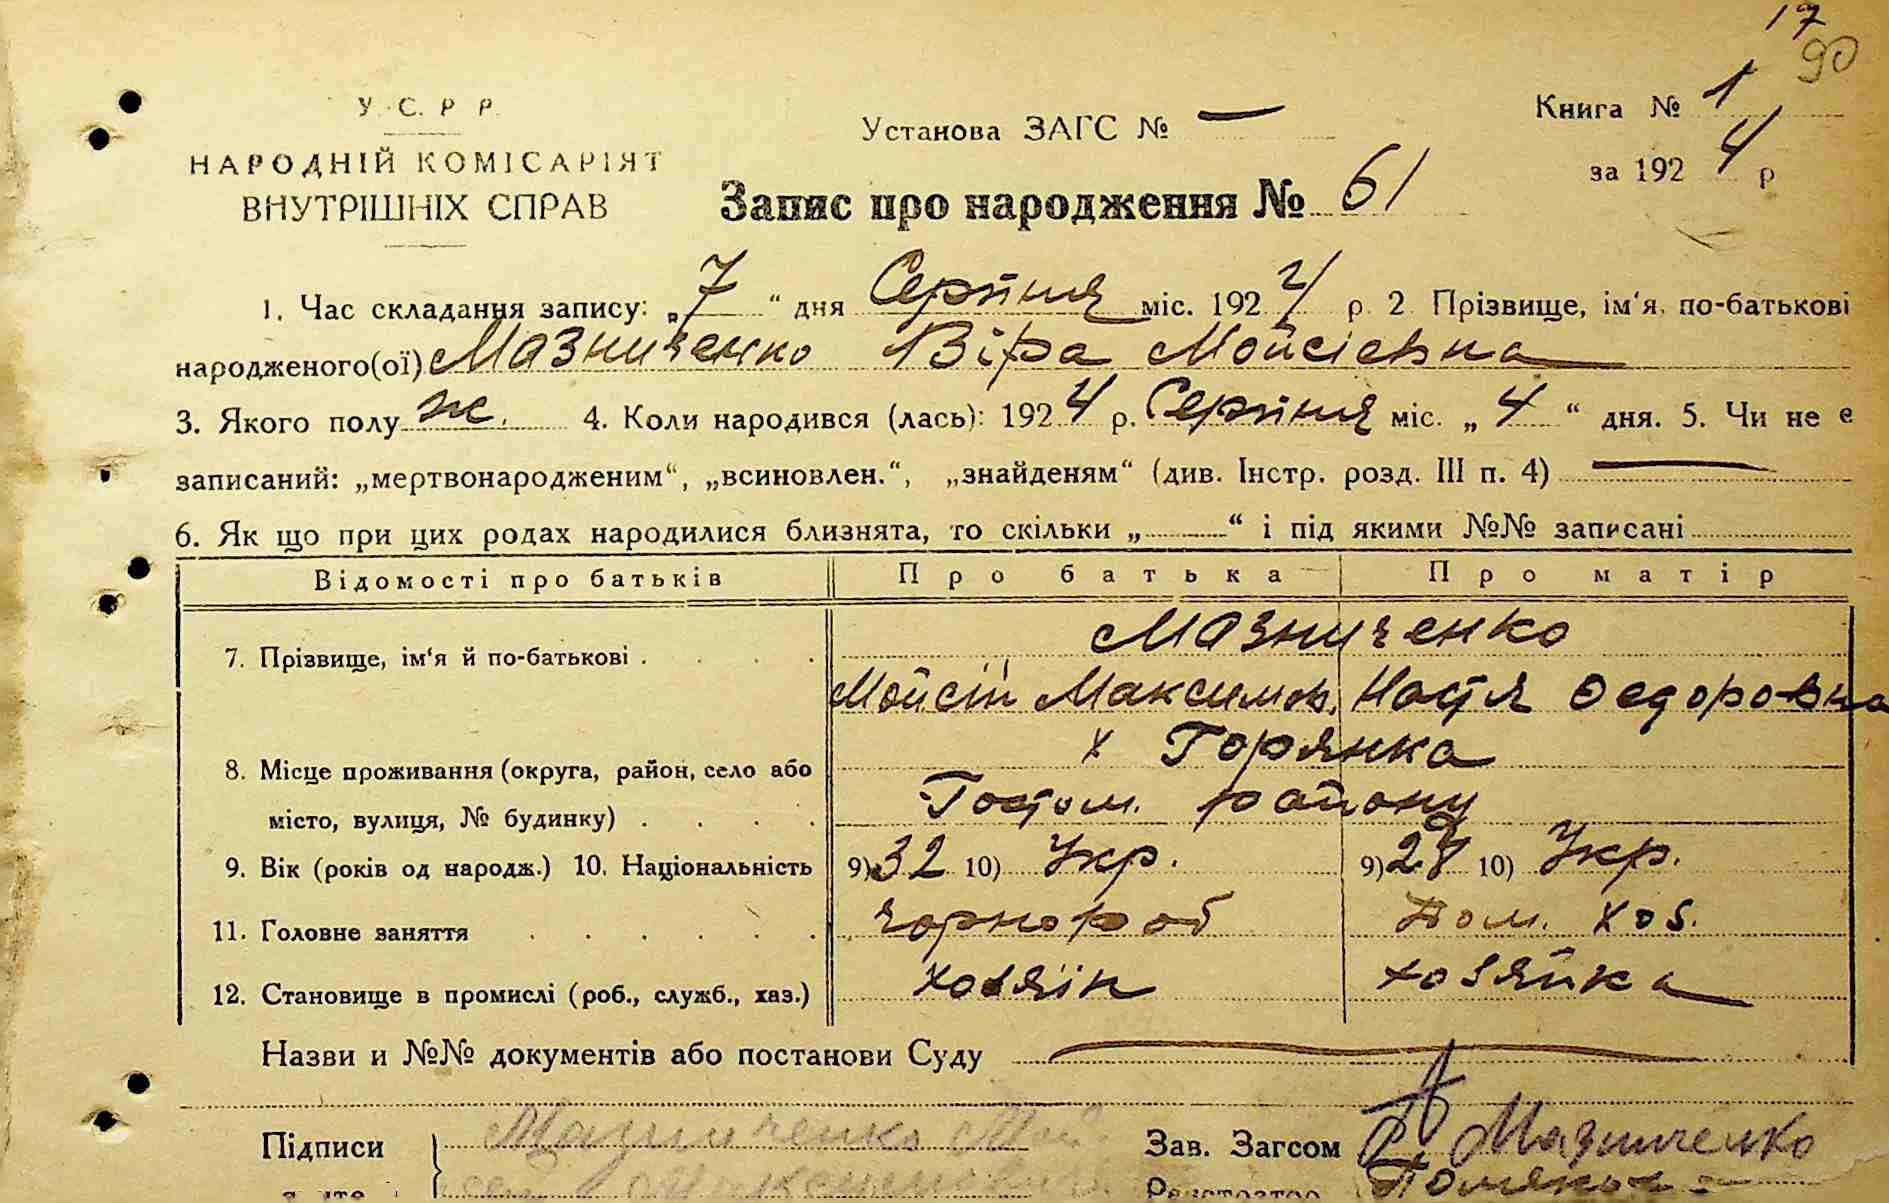 17
90
У. С. Р. Р.
НАРОДНІЙ КОМІСАРІЯТ
ВНУТРІШНІХ СПРАВ
Установа ЗАГС № —
Книга № 1
за 1924 р
Запис про народження № 61
1. Час складання запису: „7“ дня Серпня міс. 1924 р. 2. Прізвище, ім‘я, по-батькові
народженого(ої) Мазниченко Віра Мойсієвна
3. Якого полу ж. 4. Коли народився (лась): 1924 р. Серпня міс. „4“ дня. 5. Чи не є
записаний: „мертвонародженим“, „всиновлен.“, „знайденям“ (див. Інстр. розд. III п. 4) —
6. Як що при цих родах народилися близнята, то скільки „ “ і під якими №№ записані
Відомості про батьків Про батька Про матір
Мазниченко
7. Прізвище, ім‘я й по-батькові . . . .
Мойсій Максимов. Настя Федоровна
х Горянка
8. Місце проживання (округа, район, село або
місто, вулиця, № будинку) . . . . Гостом. району
9. Вік (років од народж.) 10. Національність 9) 32 10) Укр. 9) 28 10) Укр.
11. Головне заняття . . . . . . чорнороб Дом. хоз.
12. Становище в промислі (роб., служб., хаз.) хозяїн хозяйка
Назви и №№ документів або постанови Суду —
Підписи Мазниченко Мой
Зав. Загсом Мазниченко